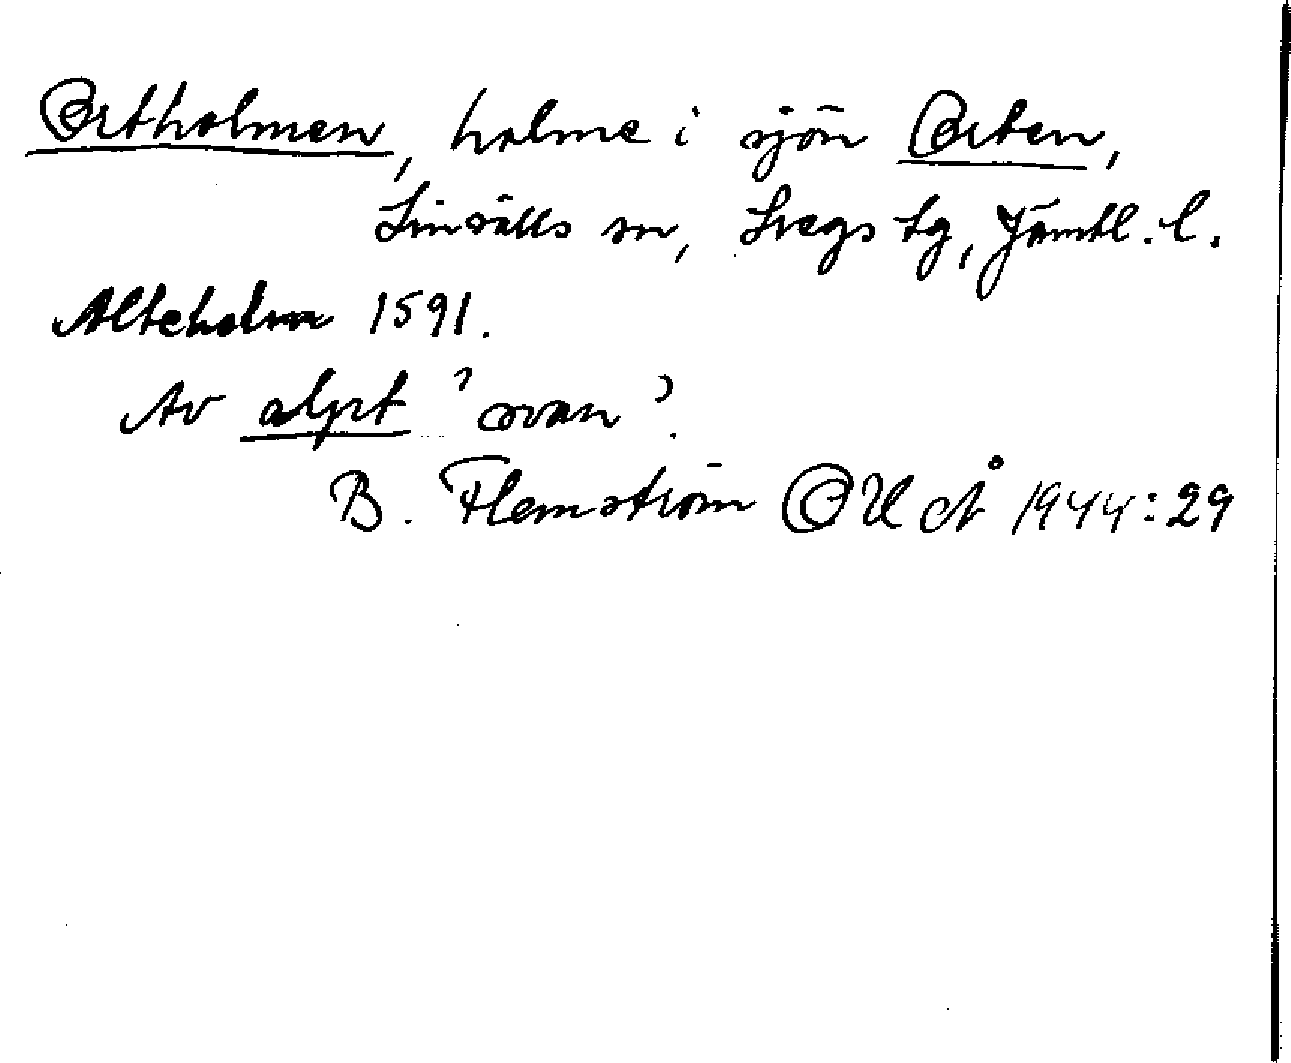 Ortholmen, holme i sjön Orten,
Linsälls sn, Svegs tg, Jämtl. l.
Alteholm 1591.
Av alpt 'svan'.
B. Flemström OUÅ 1944:29